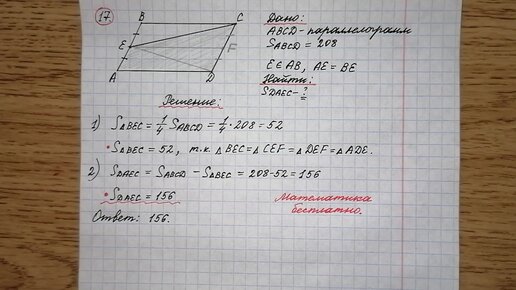 17
B
C
E
F
A
D
Дано:
ABCD - параллелограмм
S ABCD = 208
E ∈ AB, AE = BE
Найти:
S DAEC - ?
Решение:
1) S△BEC = 1/4 S ABCD = 1/4 · 208 = 52
• S△BEC = 52, т.к. △BEC = △CEF = △DEF = △ADE.
2) S DAEC = S ABCD - S△BEC = 208 - 52 = 156
• S DAEC = 156
Ответ: 156.
Математика
бесплатно.